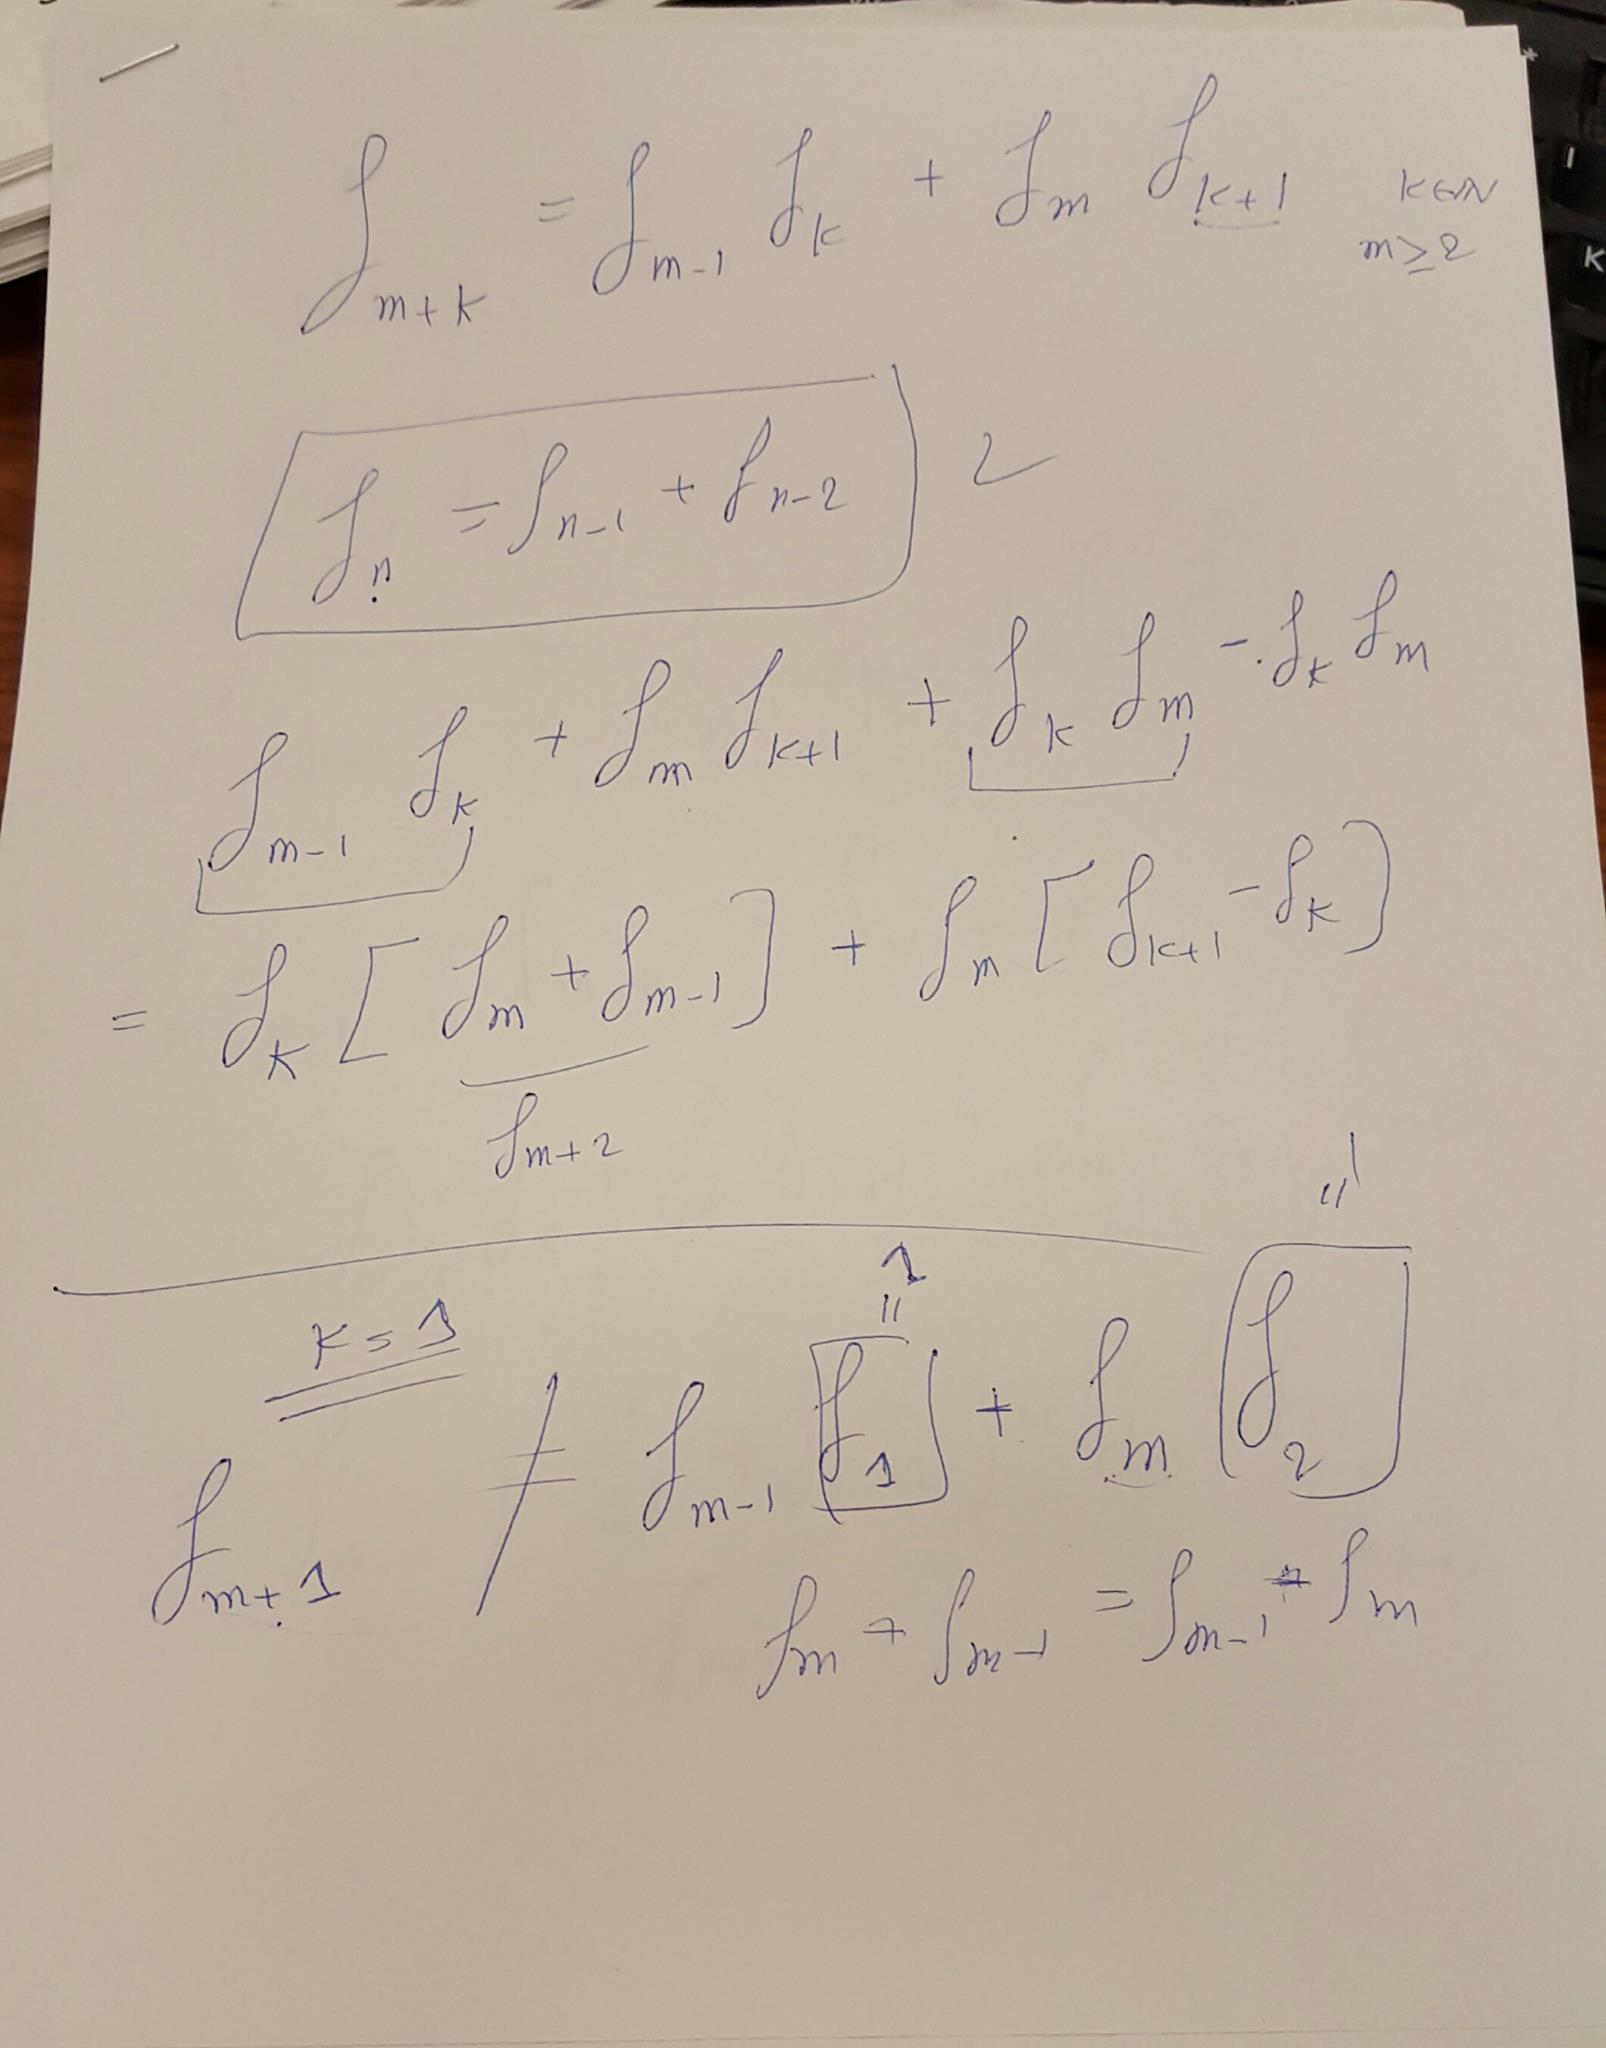 f_{m+k} = f_{m-1} f_k + f_m f_{k+1} k∈ℕ
m≥2
f_n = f_{n-1} + f_{n-2}
f_{m-1} f_k + f_m f_{k+1} + f_k f_m - f_k f_m
= f_k [f_m + f_{m-1}] + f_m [f_{k+1} - f_k]
f_{m+2}
k=1
1 = 1 =
f_{m+1} ≠ f_{m-1} f_1 + f_m f_2
f_m + f_{m-1} = f_{m-1} + f_m